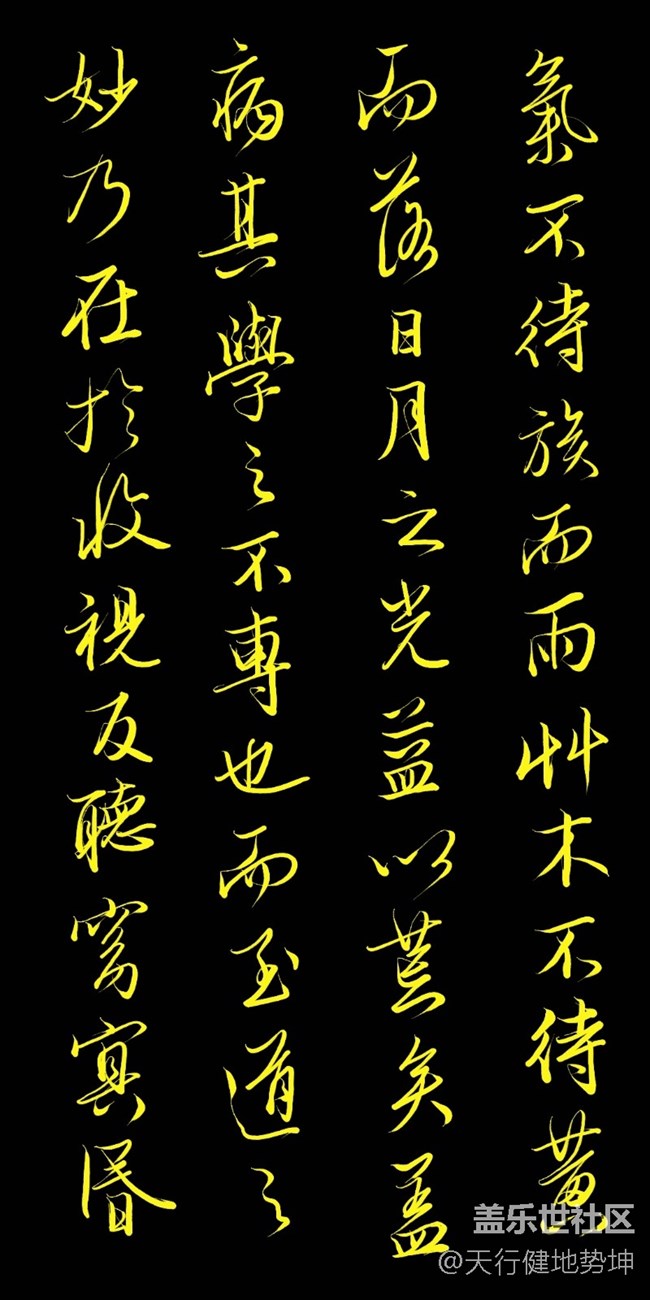 氣不待族而雨艸木不待黃
而落日月之光益以荒矣盖
病其學之不專也而至道之
妙乃在於收視反聽窈冥昬
盖乐世社区
@天行健地势坤